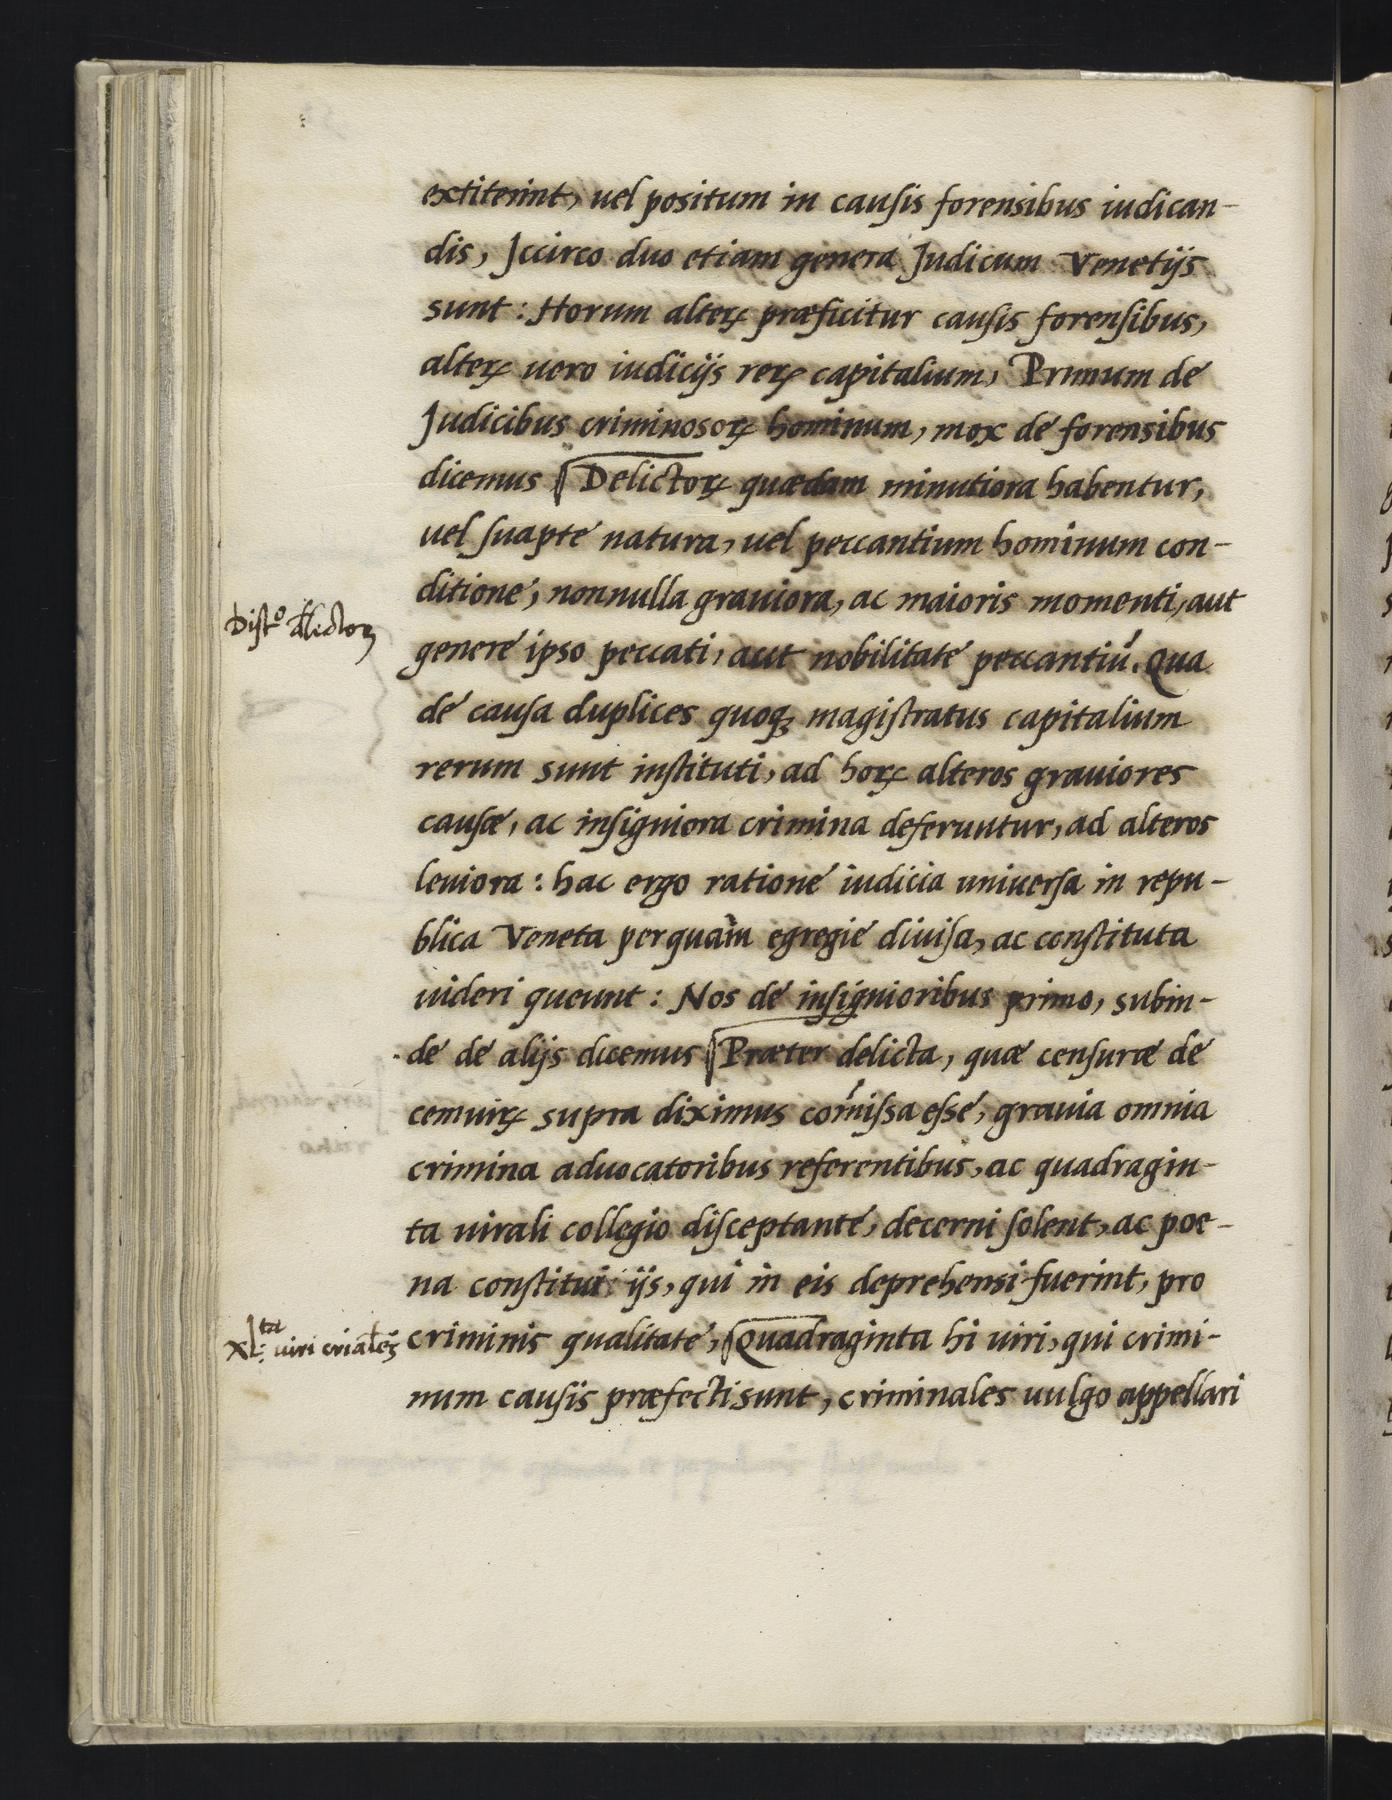 extiterint, uel positum in causis forensibus iudican-
dis, Jccirco duo etiam genera Judicum Venetijs
sunt: Horum alterꝝ præficitur causis forensibus,
alterꝝ uero iudicijs rerꝝ capitalium, Primum de
Judicibus criminosorꝝ hominum, mox de forensibus
dicemus Delictorꝝ quædam minutiora habentur,
uel suapte natura, uel peccantium hominum con-
ditione, nonnulla grauiora, ac maioris momenti, aut
Dist.º dlictorꝝ
genere ipso peccati, aut nobilitate peccantiū. Qua
de causa duplices quoqꝫ magistratus capitalium
rerum sunt instituti, ad horꝝ alteros grauiores
causæ, ac insigniora crimina deferuntur, ad alteros
leuiora: hac ergo ratione iudicia uniuersa in repu-
blica Veneta perquàm egregie diuisa, ac constituta
uideri queunt: Nos de insignioribus primo, subin-
de de alijs dicemus Præter delicta, quæ censuræ de
cemuirꝝ supra diximus com̄issa esse, grauia omnia
crimina aduocatoribus referentibus, ac quadragin-
ta uirali collegio disceptante, decerni solent, ac poe-
na constitui ijs, qui in eis deprehensi fuerint, pro
XL:ta uiri criāles
criminis qualitate, Quadraginta hi uiri, qui crimi-
num causis præfecti sunt, criminales uulgo appellari